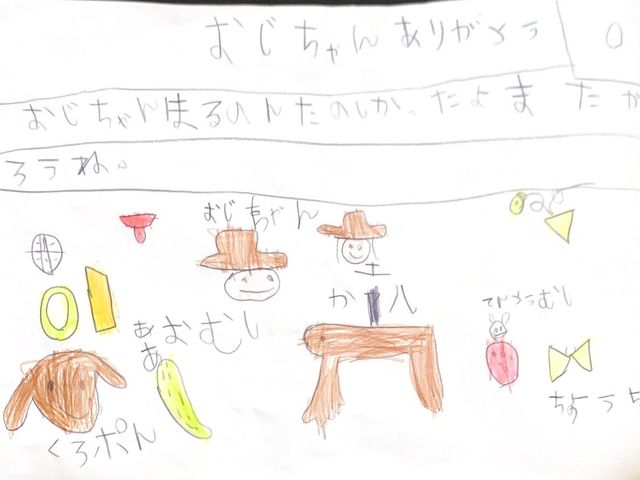 おじちゃんありがとう
おじちゃんまるのんたのしかったよまたか
ろうね。
おじちゃん
か八
てんとうむし
ああおむし
ちょうち
くろポん